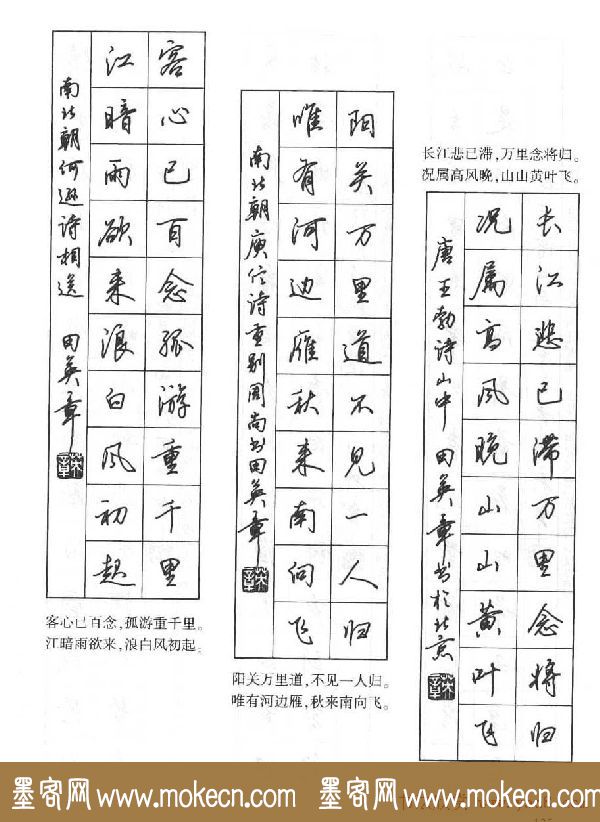 客心已百念孤游重千里
江暗雨欲来浪白风初起
南北朝何逊诗相送 田英章
客心已百念，孤游重千里。
江暗雨欲来，浪白风初起。
阳关万里道不见一人归
唯有河边雁秋来南向飞
南北朝庾信诗重别周尚书田英章
阳关万里道，不见一人归。
唯有河边雁，秋来南向飞。
长江悲已滞，万里念将归。
况属高风晚，山山黄叶飞。
长江悲已滞万里念将归
况属高风晚山山黄叶飞
唐王勃诗山中 田英章书于北京
墨客网 www.mokecn.com 墨客网 www.mokecn.com